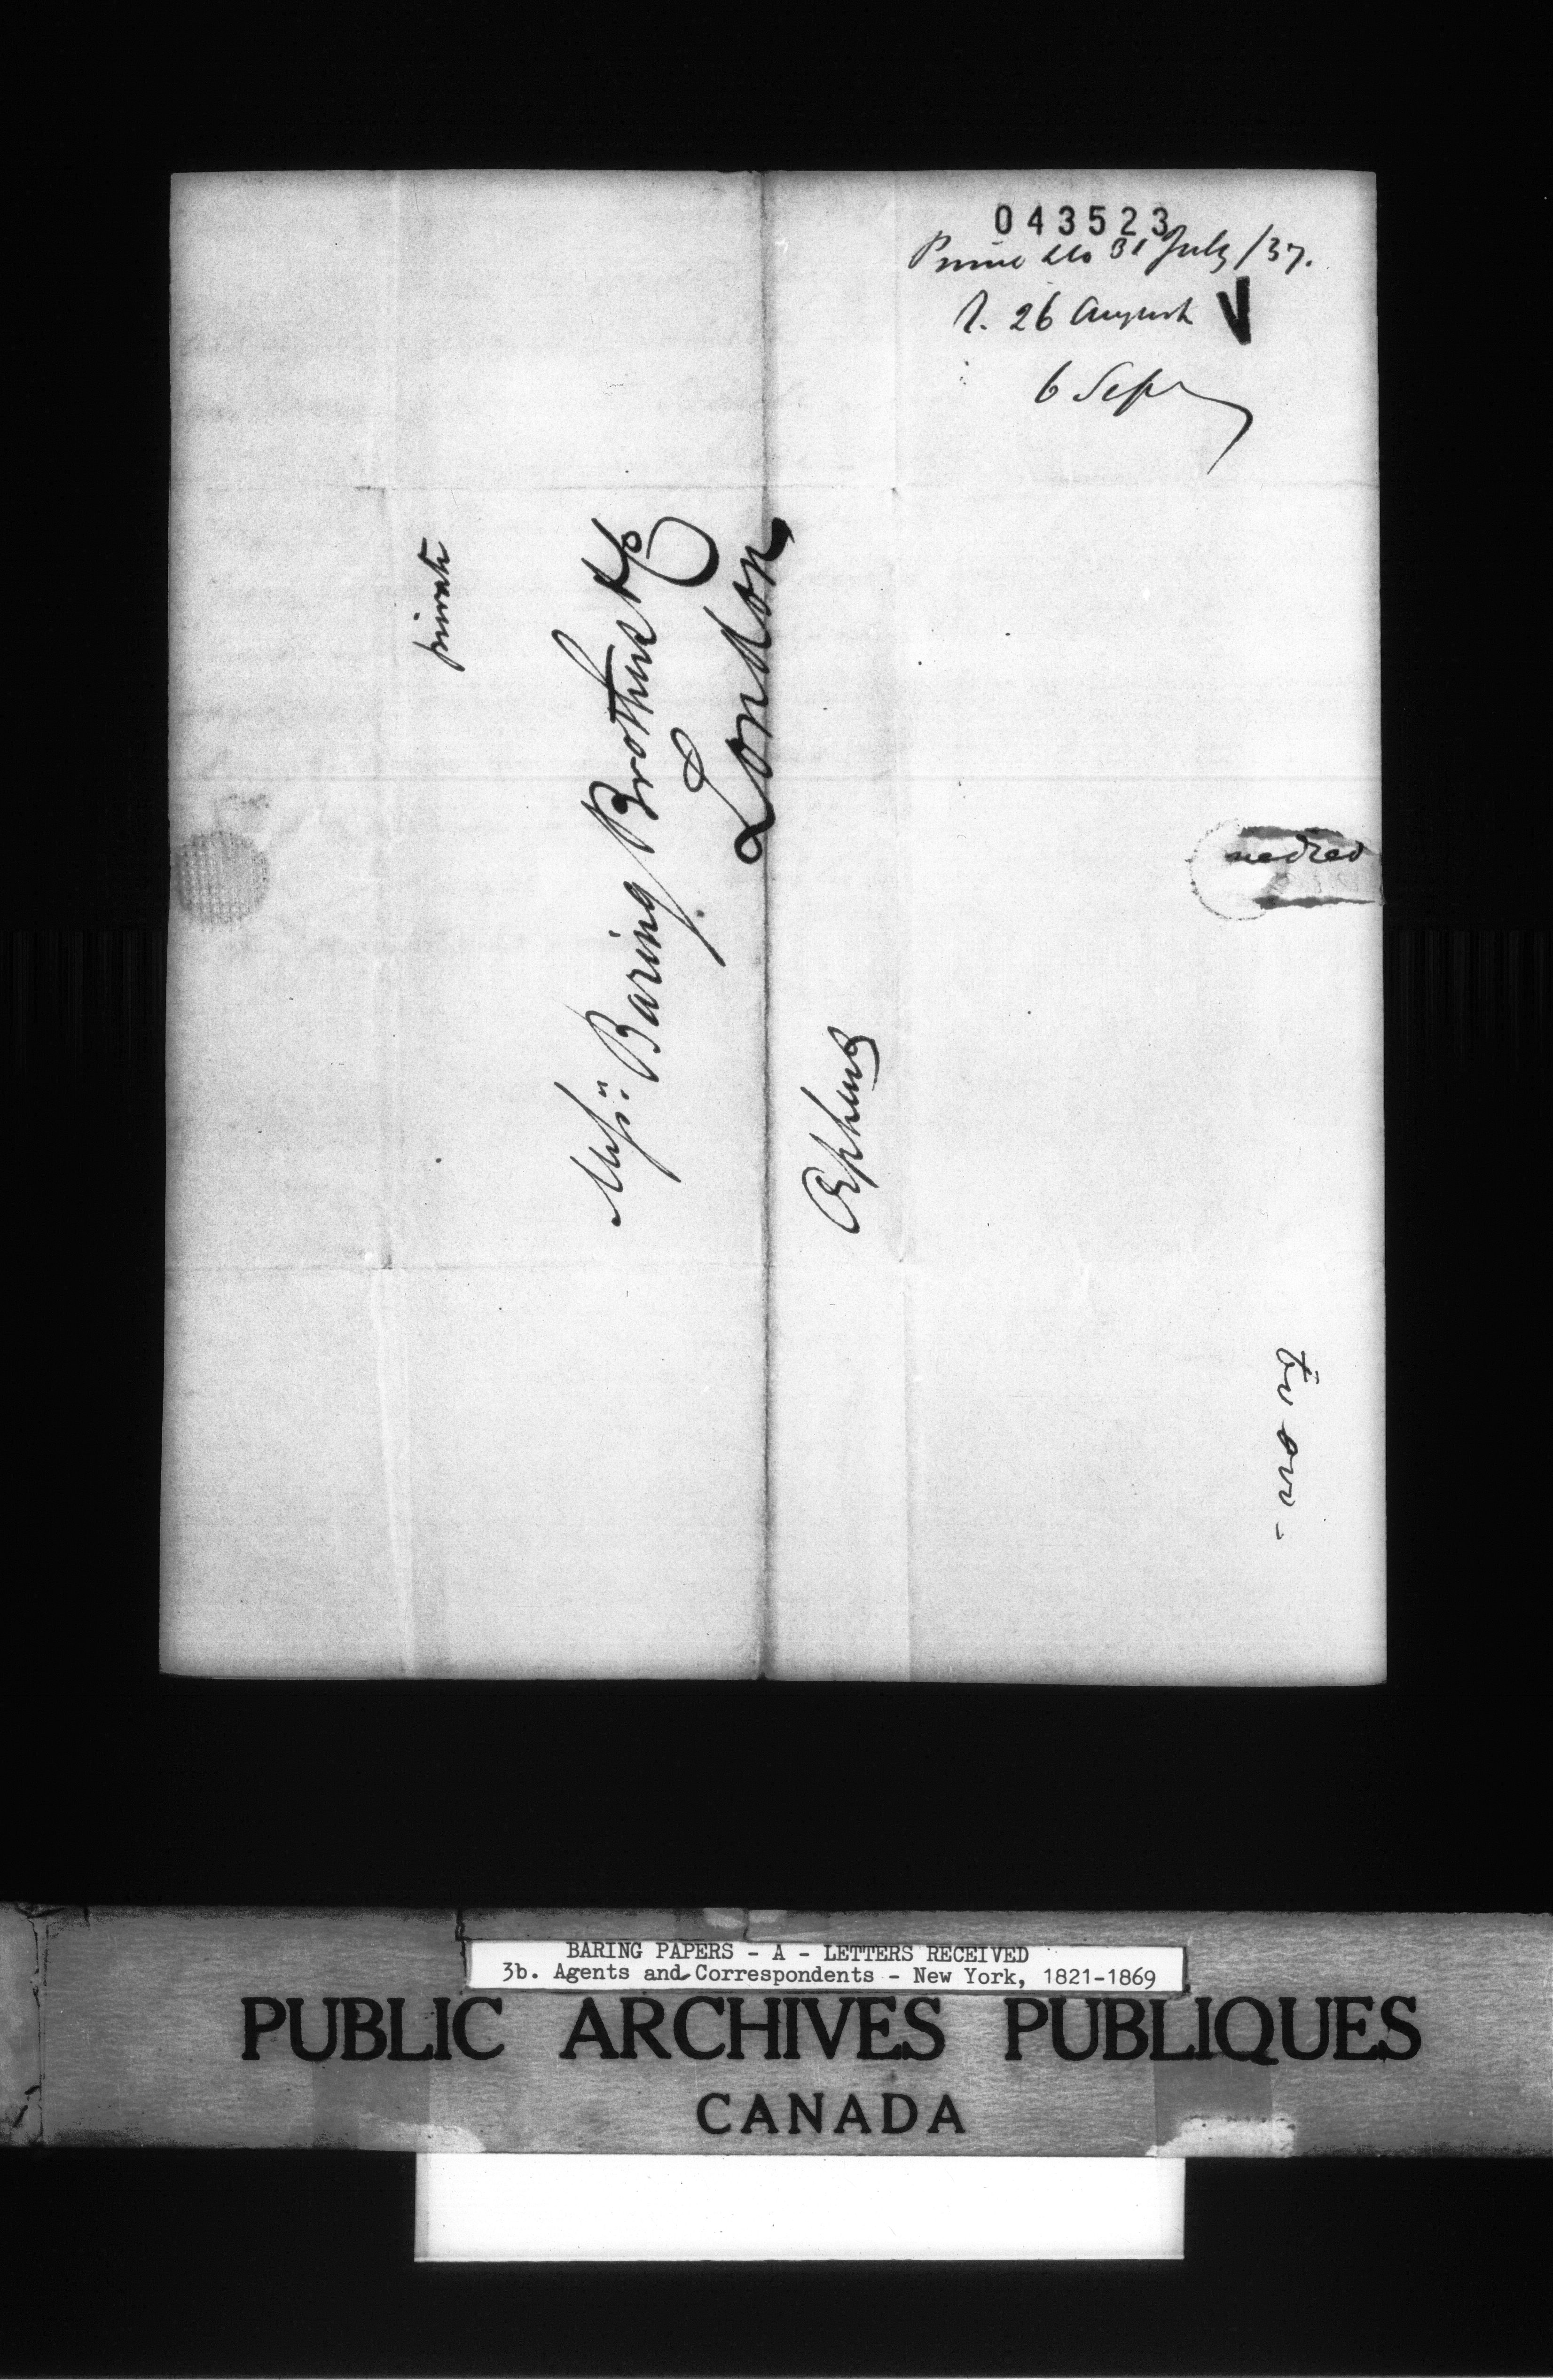 043523
Prime Wo 31 July /37.
r. 26 August V
6 Sep
private
Messrs. Baring Brothers & Co
London
Orpheus
BARING PAPERS - A - LETTERS RECEIVED
3b. Agents and Correspondents - New York, 1821-1869
PUBLIC ARCHIVES PUBLIQUES
CANADA